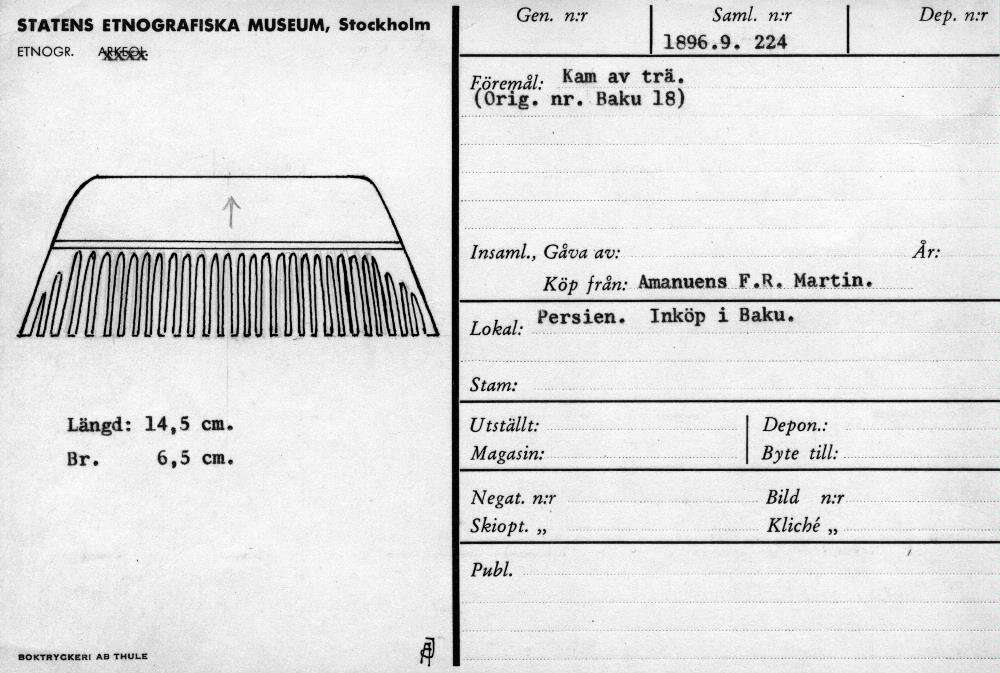 STATENS ETNOGRAFISKA MUSEUM, Stockholm
ETNOGR. ARKEOL.
Längd: 14,5 cm.
Br. 6,5 cm.
BOKTRYCKERI AB THULE
Gen. n:r
Saml. n:r
Dep. n:r
1896.9. 224
Föremål: Kam av trä.
(Orig. nr. Baku 18)
Insaml., Gåva av: År:
Köp från: Amanuens F.R. Martin.
Lokal: Persien. Inköp i Baku.
Stam:
Utställt: Depon.:
Magasin: Byte till:
Negat. n:r Bild n:r
Skiopt. „ Kliché „
Publ.